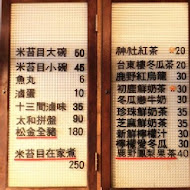 米苔目大碗 50
米苔目小碗 45
魚丸 5
滷蛋 10
十三間滷味 35
太和拼盤 90
松金全豬 180
米苔目在家煮
250
神社紅茶 20
台東糖冬瓜茶 20
鹿野紅烏龍 30
初鹿鮮奶茶 30
冬瓜戀牛奶 30
珍珠鮮奶茶 35
珍珠鮮奶 35
新鮮檸檬汁 30
檸檬戀冬瓜 30
鹿野鳳梨果茶 40